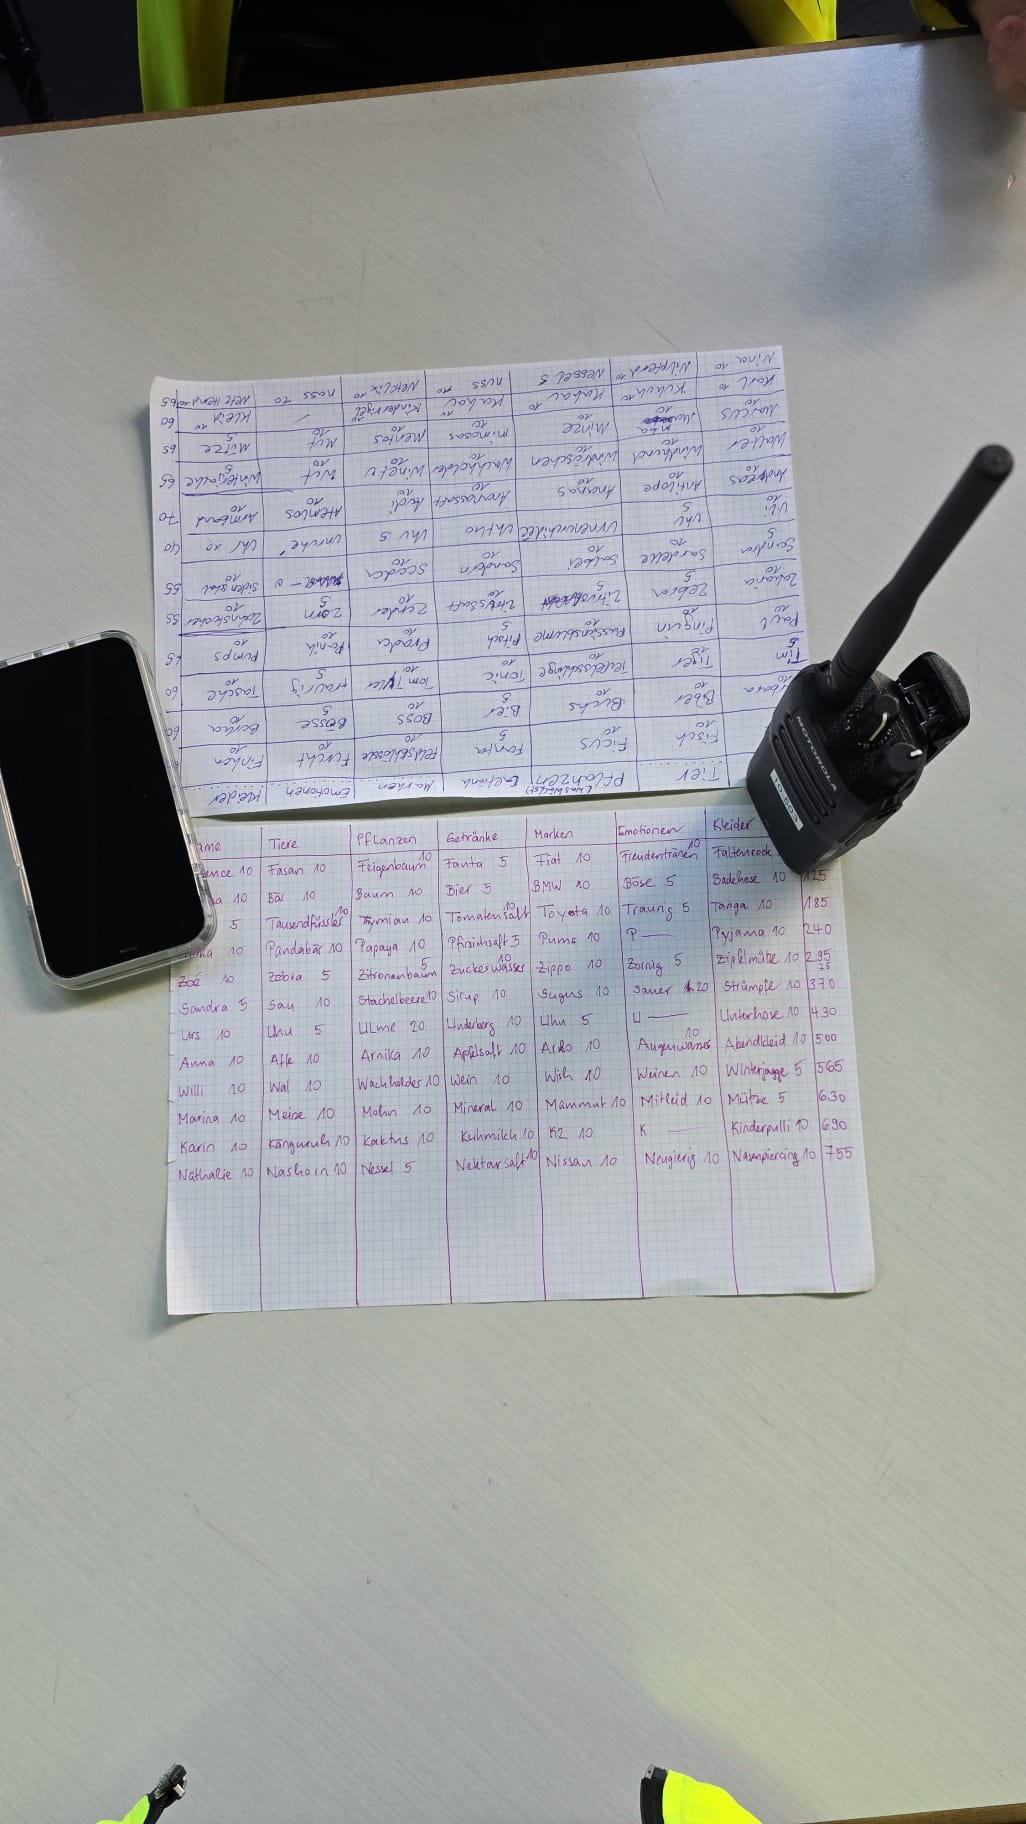 Nina 10 Nilpferd 10 Nessel 5 nuss 10 Netflix 10 nass 10 65
Karl 10 Kakadu 10
Marcus 10 Minze 10 mimosas 10 Mentos 10 Mut 10 Mütze 5 65
Walter 10 Windhund 10 Windröschen 10 Wachholder 10 Winetu 10 Wut 10 Winterjacke 5 65
Andreas 10 Antilope 10 Ananas 10 Ananassaft 10 Audi 10 Atemlos 10 Armband 10 70
Uli 10 Uhu 5 Uhu 5 unruhe Uhr 10 40
Sandra 5 Sardelle 10 Salbei 10 10 10 - 0 10 55
Zebra 5 5 Zitrussaft 10 Zander 10 Zorn 5 Zahnstocher 10 55
Paul 10 Pinguin 10 Passionsblume 10 Pfirsich 5 Prada 10 Panik 10 Pumps 10 65
Tim 5 Tiger 10 Teufelsschlinge 10 Tonic 10 Tom Tailor 10 traurig 5 Tasche 10 60
Biber 10 Buchs 10 Bier 5 BOSS 10 Bösse 5 10 60
Fisch 10 Ficus 10 Fanta 5 Feldschlössle 10 Furcht 10 Finken 10
Tier Pflanzen Getränk Marken Emotionen Kleider
MOTOROLA
ame Tiere Pflanzen Getränke Marken Emotionen Kleider
ence 10 Fasan 10 Feigenbaum 10 Fanta 5 Fiat 10 Freudentränen 10 Faltenrock
a 10 Bär 10 Baum 10 Bier 5 BMW 10 Böse 5 Badehose 10 125
5 Tausendfüssler 10 Tymian 10 Tomatensaft 10 Toyota 10 Traurig 5 Tanga 10 185
ka 10 Pandabär 10 Papaya 10 Pfirsichsaft 5 Puma 10 P — Pyjama 10 240
Zoé 10 Zebra 5 Zitronenbaum 5 Zuckerwasser 10 Zippo 10 Zornig 5 Zipfelmütze 10 295
Sandra 5 Sau 10 Stachelbeere 10 Sirup 10 Sugus 10 Sauer 20 Strümpfe 10 370
Urs 10 Uhu 5 Ulme 20 Underberg 10 Uhu 5 U — Unterhose 10 430
Anna 10 Affe 10 Arnika 10 Apfelsaft 10 10 Augenwasser 10 Abendkleid 10 500
Willi 10 Wal 10 Wachholder 10 Wein 10 Wish 10 Weinen 10 Winterjagge 5 565
Marina 10 Meise 10 Mohn 10 Mineral 10 Mammut 10 Mitleid 10 Mütze 5 630
Karin 10 Känguruh 10 Kaktus 10 Kuhmilch 10 K2 10 K — Kinderpulli 10 690
Nathalie 10 Nashorn 10 Nessel 5 Nektarsaft 10 Nissan 10 Neugierig 10 Nasenpiercing 10 755